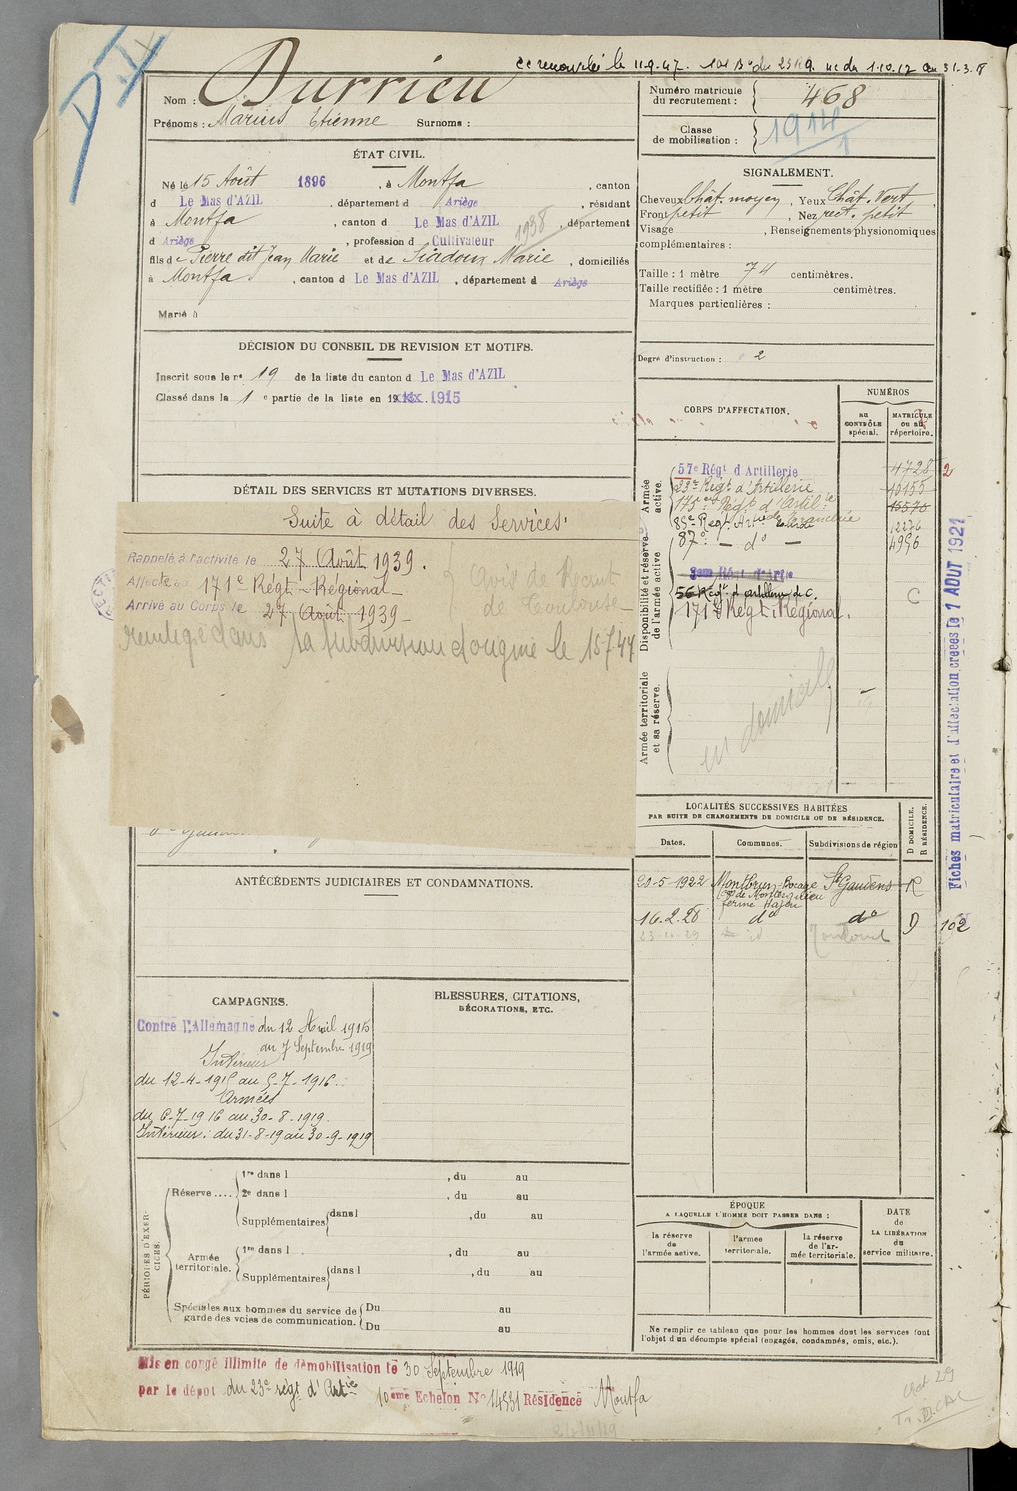 P
ce renouvelée le 11.9.47.
Nom : Durrieu
Prénoms : Marius Etienne Surnoms :
Numéro matricule du recrutement : 468
Classe de mobilisation : 1914
1
ÉTAT CIVIL.
Né le 15 Août 1896, à Montfa, canton
d Le Mas d'AZIL, département d Ariège, résidant
à Montfa, canton d Le Mas d'AZIL, département
d Ariège, profession d Cultivateur 1938
fils de Pierre dit Jean Marie et de Siadoux Marie, domiciliés
à Montfa, canton d Le Mas d'AZIL, département d Ariège
Marié à
SIGNALEMENT.
Cheveux Chât. moyen, Yeux Chât. Vert,
Front petit, Nez rect. petit
Visage , Renseignements physionomiques
complémentaires :
Taille : 1 mètre 74 centimètres.
Taille rectifiée : 1 mètre centimètres.
Marques particulières :
Degré d'instruction : 2
DÉCISION DU CONSEIL DE REVISION ET MOTIFS.
Inscrit sous le n° 19 de la liste du canton d Le Mas d'AZIL
Classé dans la 1 e partie de la liste en 19 1915
CORPS D'AFFECTATION.
NUMÉROS
au CONTRÔLE spécial.
MATRICULE ou au répertoire.
Armée active.
57e Régt d Artillerie 4728
23e Régt d'Artillerie 10155
175e Régt d'Artil.ie 15570
Disponibilité et réserve de l'armée active
85e Régt Arti.ie Lourde 12276
87e — d° — 4996
56 Régt d'artillerie de C. C
171e Régt Régional.
Armée territoriale et sa réserve.
en domicile
DÉTAIL DES SERVICES ET MUTATIONS DIVERSES.
Suite à détail des Services.
Rappelé à l'activité le 27 Août 1939.
Affecté au 171e Régt Régional
Arrivé au Corps le 27 Août 1939
de Toulouse
réintégré dans sa subdivision d'origine le 15.7.44
Fiches matriculaire et d'affectation créées le 7 AOUT 1921
LOCALITÉS SUCCESSIVES HABITÉES
PAR SUITE DE CHANGEMENTS DE DOMICILE OU DE RÉSIDENCE.
Dates. Communes. Subdivisions de région D DOMICILE. R RÉSIDENCE.
20-5-1922 Montbrun-Bocage St Gaudens R
ferme Hajou
16.2.28 d° d° D 162
23-11-29 id Toulouse
ANTÉCÉDENTS JUDICIAIRES ET CONDAMNATIONS.
CAMPAGNES.
Contre l'Allemagne du 12 Avril 1915
au 7 Septembre 1919
Intérieur
du 12-4-1915 au 5-7-1916.
Armées
du 6-7-1916 au 30-8-1919.
Intérieur : du 31-8-19 au 30-9-1919
BLESSURES, CITATIONS,
DÉCORATIONS, ETC.
PÉRIODES D'EXERCICES.
Réserve .... 1re dans l , du au
2e dans l , du au
Supplémentaires dans l , du au
Armée territoriale. 1re dans l , du au
Supplémentaires dans l , du au
Spéciales aux hommes du service de garde des voies de communication. Du au
Du au
ÉPOQUE
A LAQUELLE L'HOMME DOIT PASSER DANS :
la réserve de l'armée active.
l'armée territoriale.
la réserve de l'armée territoriale.
DATE de LA LIBÉRATION du service militaire.
Ne remplir ce tableau que pour les hommes dont les services font
l'objet d'un décompte spécial (engagés, condamnés, omis, etc.).
Mis en congé illimité de démobilisation le 30 Septembre 1919
par le dépôt du 23e régt d'Artie 10ème Echelon No 14531 Résidence Montfa